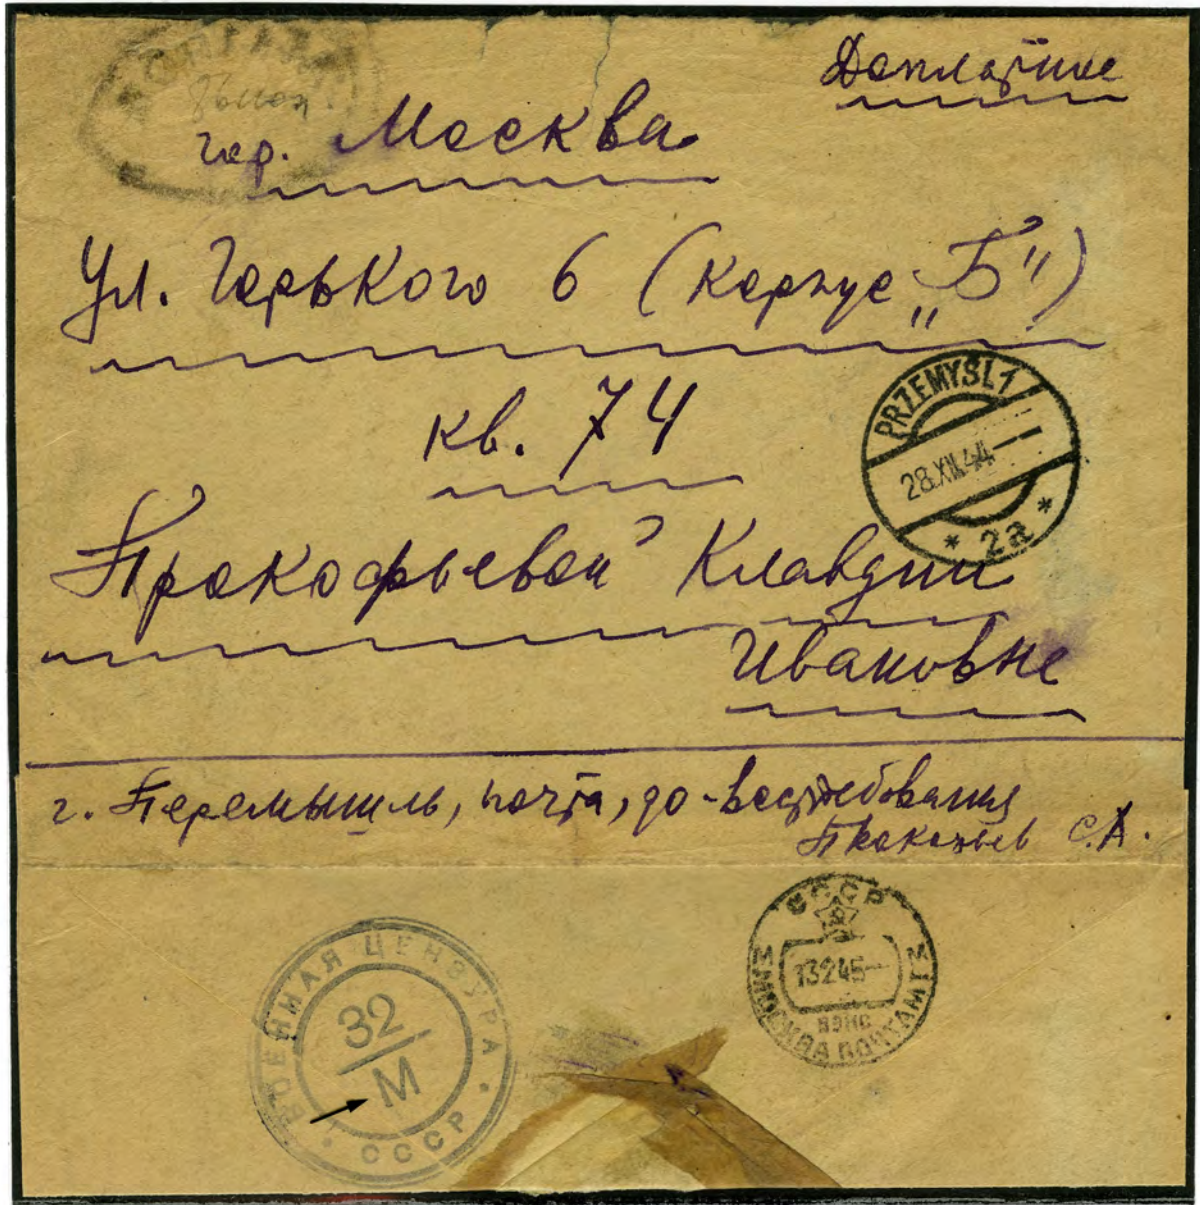 Доплатное
гор. Москва
ул. Горького 6 (корпус „Б“)
кв. 74
PRZEMYŚL 1
28.XII.44
* 2a *
Прокофьевой Клавдии
Ивановне
г. Перемышль, почта, до-востребования
Прокофьев С.А.
СССР
13245
МОСКВА ПОЧТАМТ
ВОЕННАЯ ЦЕНЗУРА
32
М
СССР